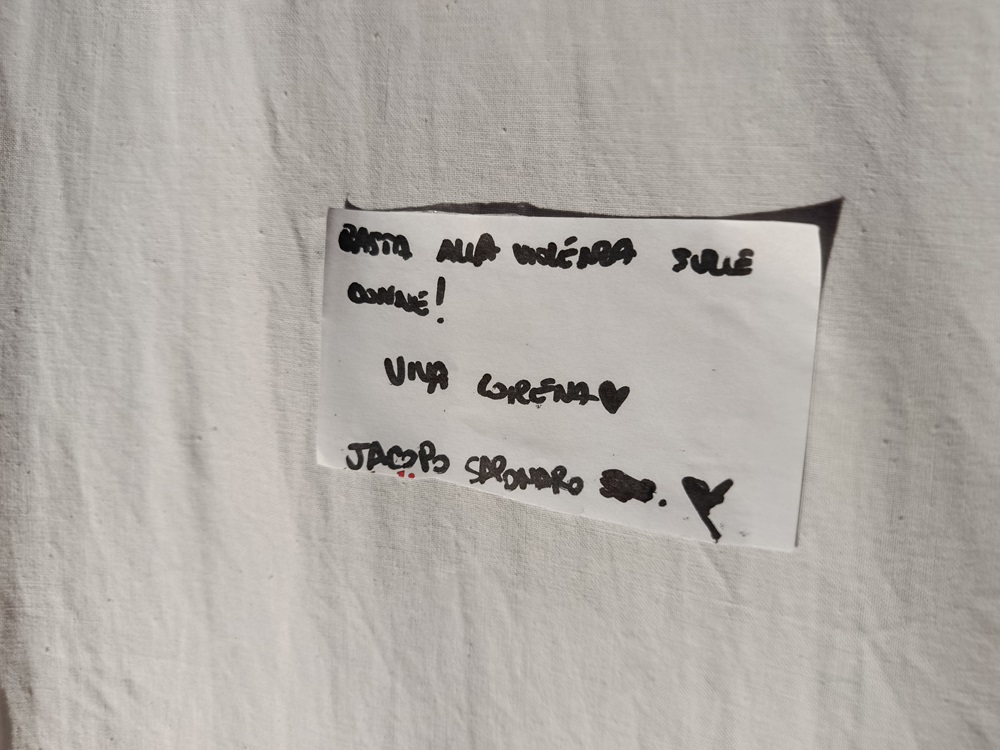 BASTA ALLA VIOLENZA SULLE
DONNE!
VIVA LORENA♥
JACOPO SAPONARO .